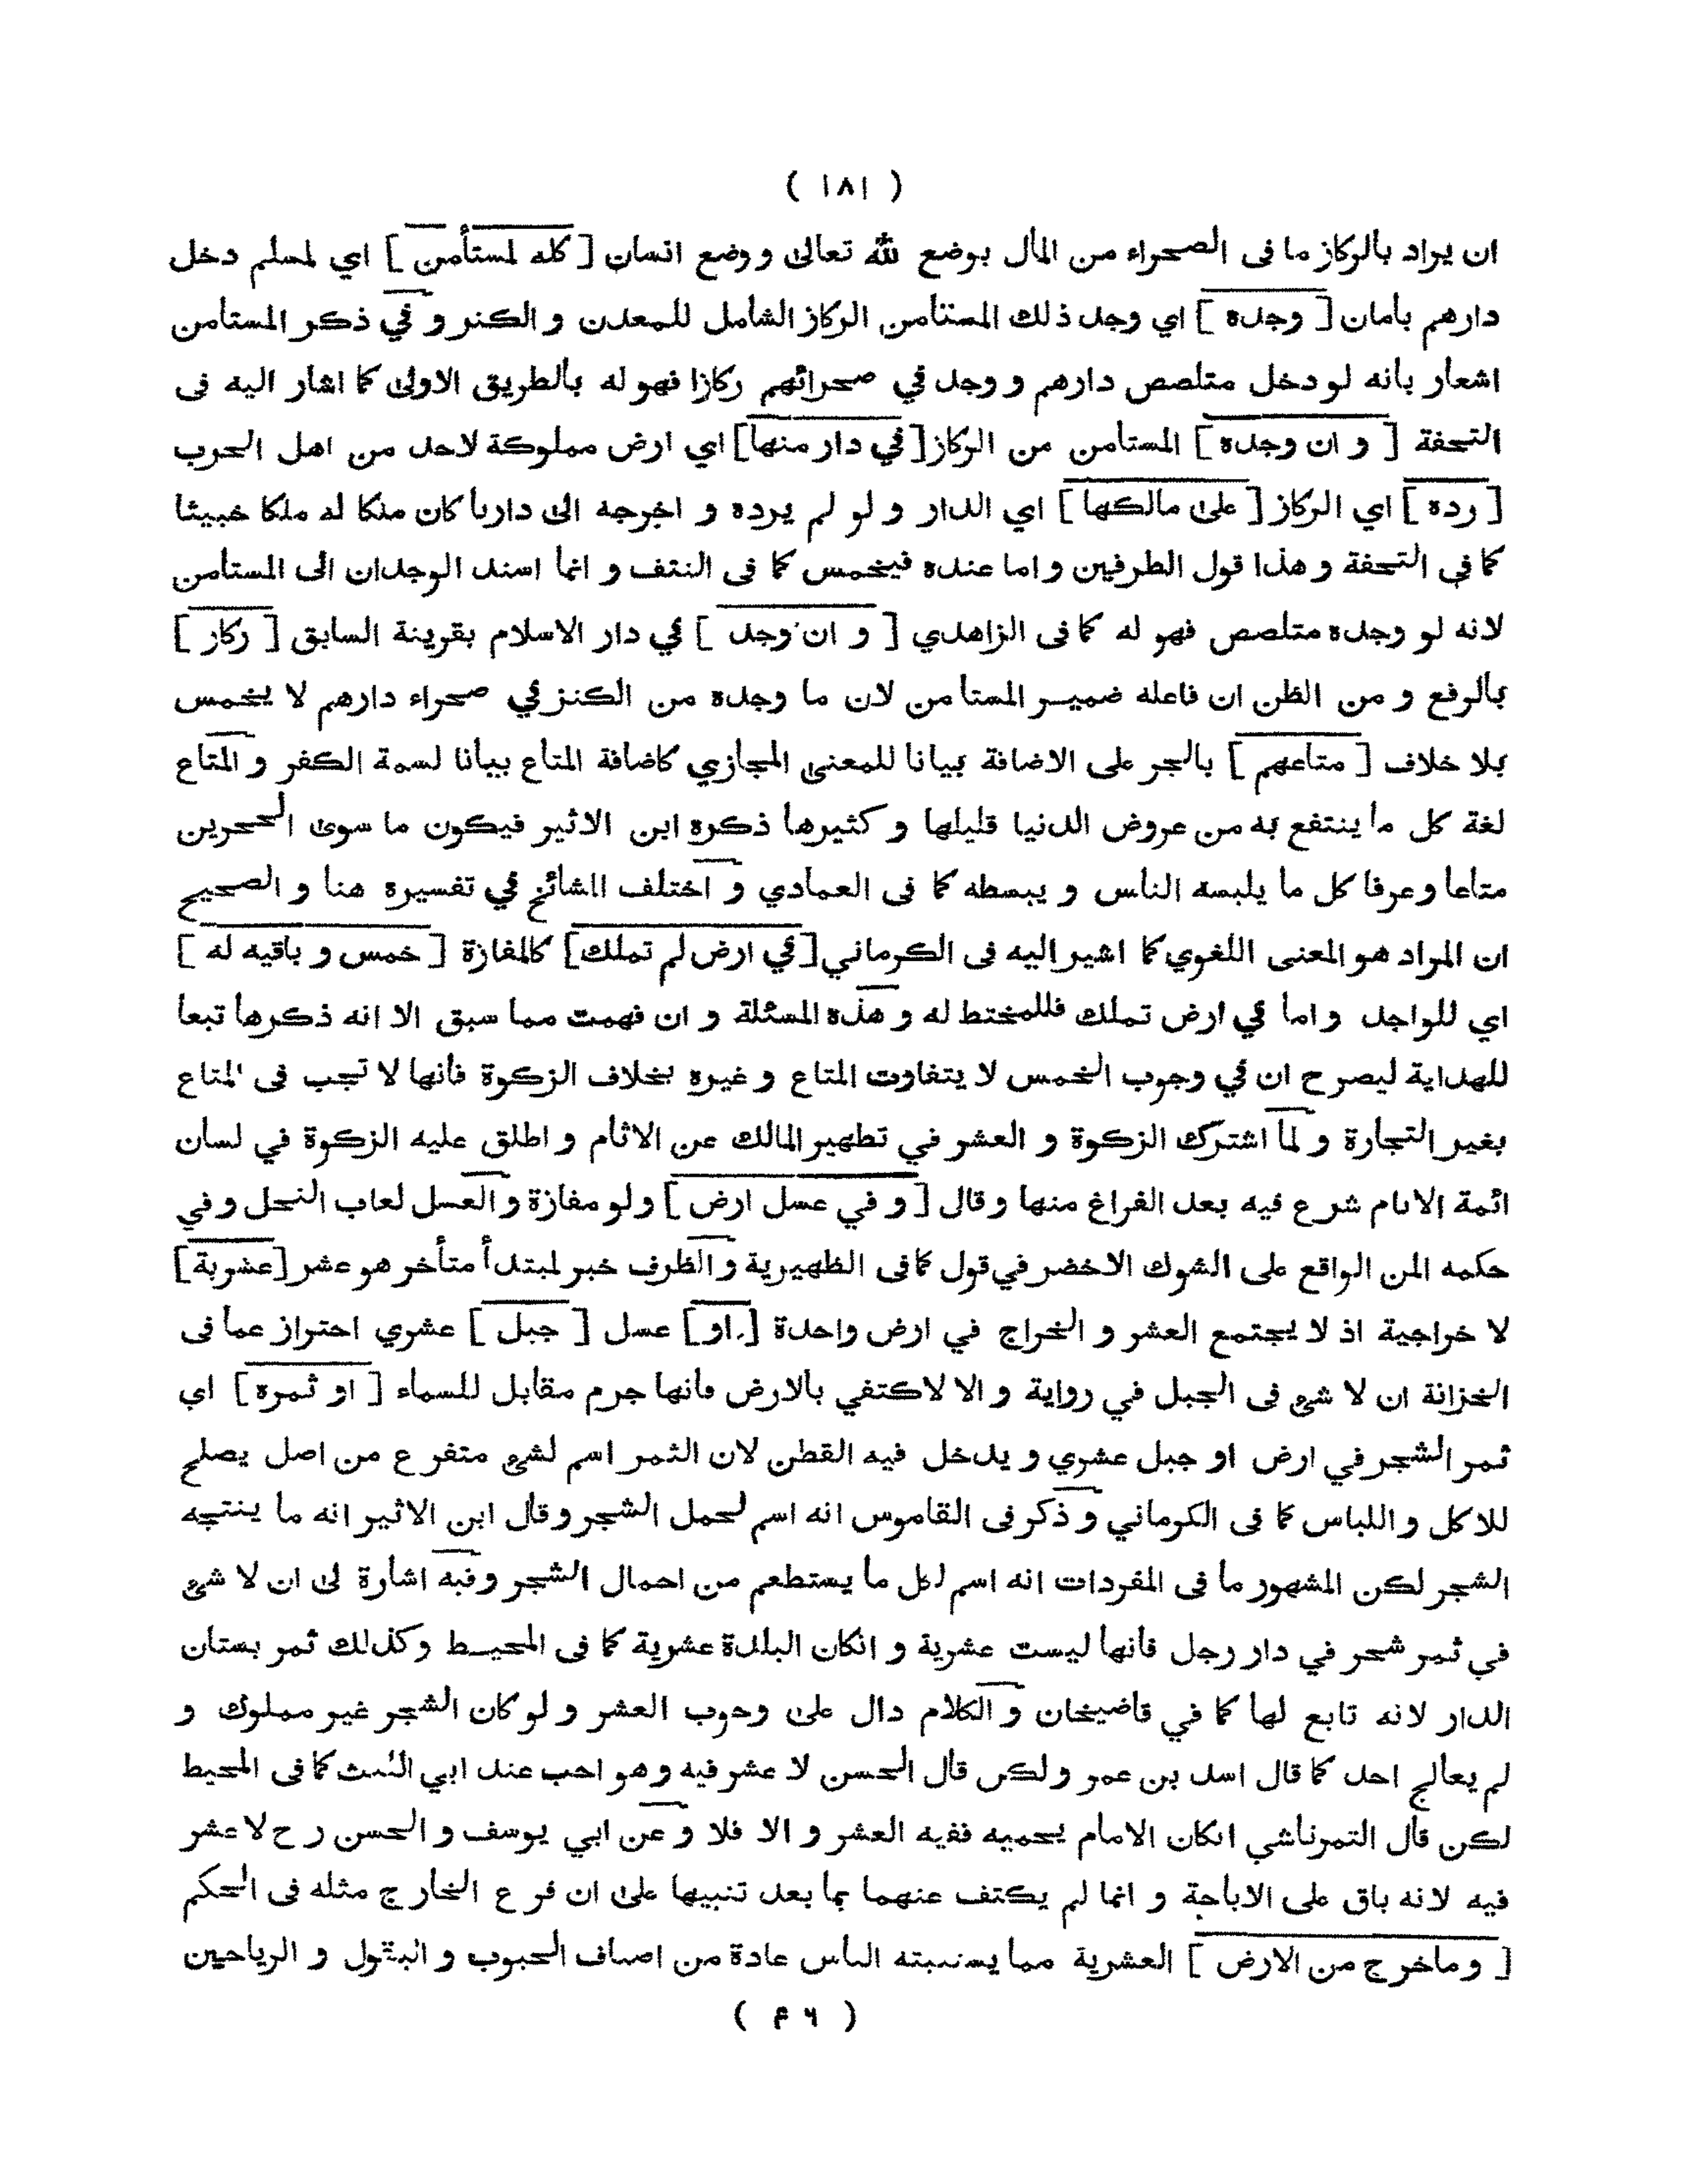 ( ١٨١ )
ان يراد بالركاز ما فى الصحراء من المال بوضع لله تعالى ووضع انسان [ كله لمستأمن ] اي لمسلم دخل
دارهم بامان [ وجده ] اي وجد ذلك المستأمن الركاز الشامل للمعدن و الكنز و في ذكر المستامن
اشعار بانه لو دخل متلصص دارهم و وجد في صحرائهم ركازا فهو له بالطريق الاولى كما اشار اليه فى
التحفة [ و ان وجده ] المستامن من الركاز [ في دار منها ] اي ارض مملوكة لاحد من اهل الحرب
[ رده ] اي الركاز [ على مالكها ] اي الدار و لو لم يرده و اخرجه الى دارنا كان ملكا له ملكا خبيثا
كما في التحفة و هذا قول الطرفين و اما عنده فيخمس كما فى النتف و انما اسند الوجدان الى المستأمن
لانه لو وجده متلصص فهو له كما فى الزاهدي [ و ان وجد ] في دار الاسلام بقرينة السابق [ ركاز ]
بالرفع و من الظن ان فاعله ضمير المستامن لان ما وجده من الكنز في صحراء دارهم لا يخمس
بلا خلاف [ متاعهم ] بالجر على الاضافة بيانا للمعنى المجازي كاضافة المتاع بيانا لسمة الكفر و المتاع
لغة كل ما ينتفع به من عروض الدنيا قليلها و كثيرها ذكره ابن الاثير فيكون ما سوى الحجرين
متاعا وعرفا كل ما يلبسه الناس و يبسطه كما فى العمادي و اختلف المشائخ في تفسيره هنا و الصحيح
ان المراد هو المعنى اللغوي كما اشير اليه فى الكرماني [ في ارض لم تملك ] كالمفازة [ خمس و باقيه له ]
اي للواجد و اما في ارض تملك فللمختط له و هذه المسئلة و ان فهمت مما سبق الا انه ذكرها تبعا
للهداية ليصرح ان في وجوب الخمس لا يتفاوت المتاع و غيره بخلاف الزكوة فانها لا تجب فى المتاع
بغير التجارة و لما اشترك الزكوة و العشر في تطهير المالك عن الاثام و اطلق عليه الزكوة في لسان
ائمة الانام شرع فيه بعد الفراغ منها و قال [ و في عسل ارض ] و لو مفازة و العسل لعاب النحل و في
حكمه المن الواقع على الشوك الاخضر في قول كما فى الظهيرية و الظرف خبر لمبتدأ متأخر هو عشر [ عشرية ]
لا خراجية اذ لا يجتمع العشر و الخراج في ارض واحدة [ او ] عسل [ جبل ] عشري احتراز عما فى
الخزانة ان لا شئ فى الجبل في رواية و الا لاكتفي بالارض فانها جرم مقابل للسماء [ او ثمرة ] اي
ثمر الشجر في ارض او جبل عشري و يدخل فيه القطن لان الثمر اسم لشئ متفرع من اصل يصلح
للاكل و اللباس كما فى الكرماني و ذكر فى القاموس انه اسم لحمل الشجر و قال ابن الاثير انه ما ينتجه
الشجر لكن المشهور ما فى المفردات انه اسم لكل ما يستطعم من احمال الشجر و فيه اشارة الى ان لا شئ
في ثمر شجر في دار رجل فانها ليست عشرية و انكان البلدة عشرية كما فى المحيط وكذلك ثمر بستان
الدار لانه تابع لها كما في قاضيخان و الكلام دال على وجوب العشر و لو كان الشجر غير مملوك و
لم يعالج احد كما قال اسد بن عمر و لكن قال الحسن لا عشر فيه و هو احب عند ابي الليث كما فى المحيط
لكن قال التمرتاشي انكان الامام يحميه ففيه العشر و الا فلا و عن ابي يوسف و الحسن رح لا عشر
فيه لانه باق على الاباحة و انما لم يكتف عنهما بما بعد تنبيها على ان فرع الخارج مثله فى الحكم
[ و ما خرج من الارض ] العشرية مما يستنبته الناس عادة من اصناف الحبوب و البقول و الرياحين
( ۴ ٦ )